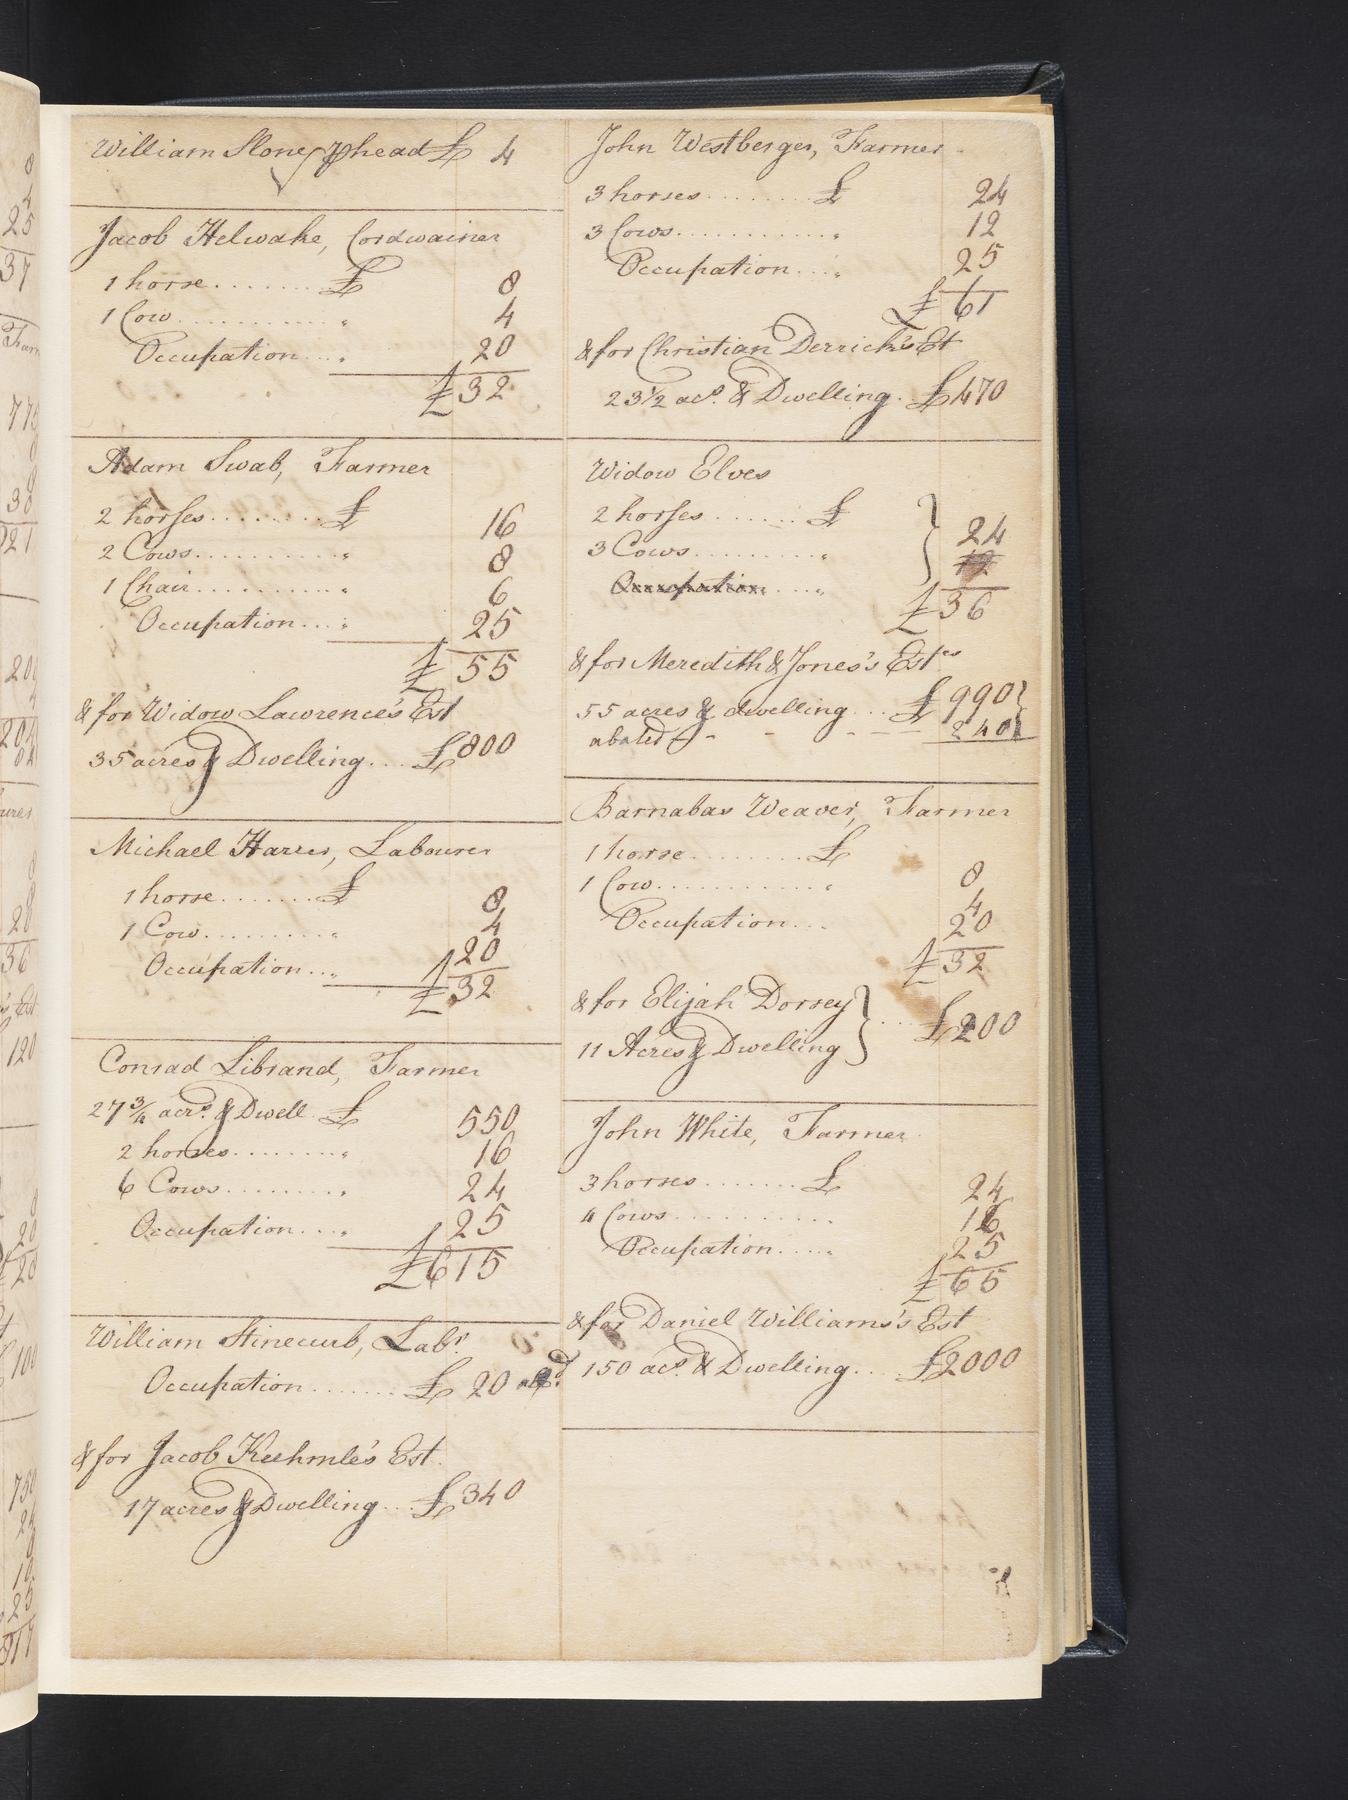 William Stoney phead £ 4
Jacob Helwake, Cordwainer
1 horse........£ 8
1 Cow............" 4
Occupation...." 20
£32
Adam Swab, Farmer
2 horses........£ 16
2 Cows..........." 8
1 Chair..........." 6
Occupation...." 25
£55
& for Widow Lawrence's Est
35 acres & Dwelling....£800
Michael Harrer, Labourer
1 horse.......£ 8
1 Cow.........." 4
Occupation..." 20
£32
Conrad Librand, Farmer
27 3/4 acrs. & Dwell. £ 550
2 horses........" 16
6 Cows........." 24
Occupation...." 25
£615
William Stinecurb, Labr.
Occupation.......£ 20
& for Jacob Keehmle's Est.
17 acres & Dwelling...£340
John Westberger, Farmer
3 horses........£ 24
3 Cows............" 12
Occupation...." 25
£61
& for Christian Derrick's Est
23 1/2 acs. & Dwelling. £470
Widow Elves
2 horses......£
3 Cows.........." 24
Occupation...." 12
£36
& for Meredith & Jones's Ests
55 acres & dwelling...£990
abated - - - - 240
Barnabas Weaver, Farmer
1 horse.........£ 8
1 Cow............" 4
Occupation... 20
£32
& for Elijah Dorsey
11 Acres & Dwelling....£200
John White, Farmer
3 horses.......£ 24
4 Cows............" 16
Occupation....." 25
£65
& for Daniel Williams's Est
150 acs. & Dwelling....£2000